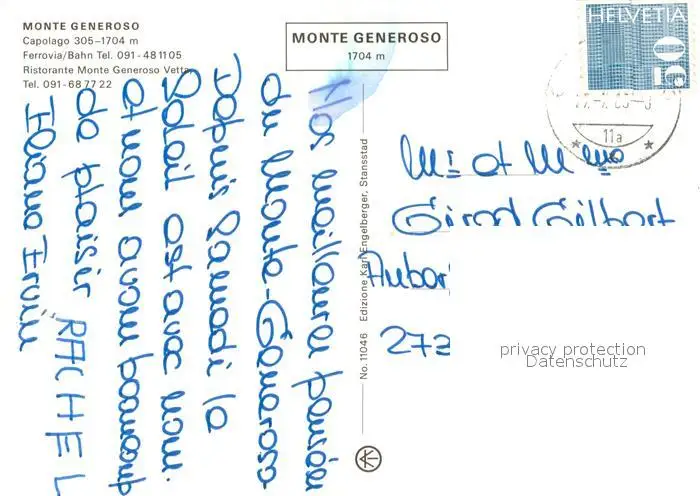 MONTE GENEROSO
Capolago 305–1704 m
Ferrovia/Bahn Tel. 091 - 48 11 05
Ristorante Monte Generoso Vetta
Tel. 091 - 68 77 22
MONTE GENEROSO
1704 m
HELVETIA
50
11a
Nos meilleures pensées
du Monte-Generoso
Depuis Samedi le
Soleil est avec nous.
et nous avons beaucoup
de plaisir RACHEL
Eliane Erwin
No. 11046 Edizione Karl Engelberger, Stansstad
M. et Mme
Girod Gilbert
Auber
272
privacy protection
Datenschutz